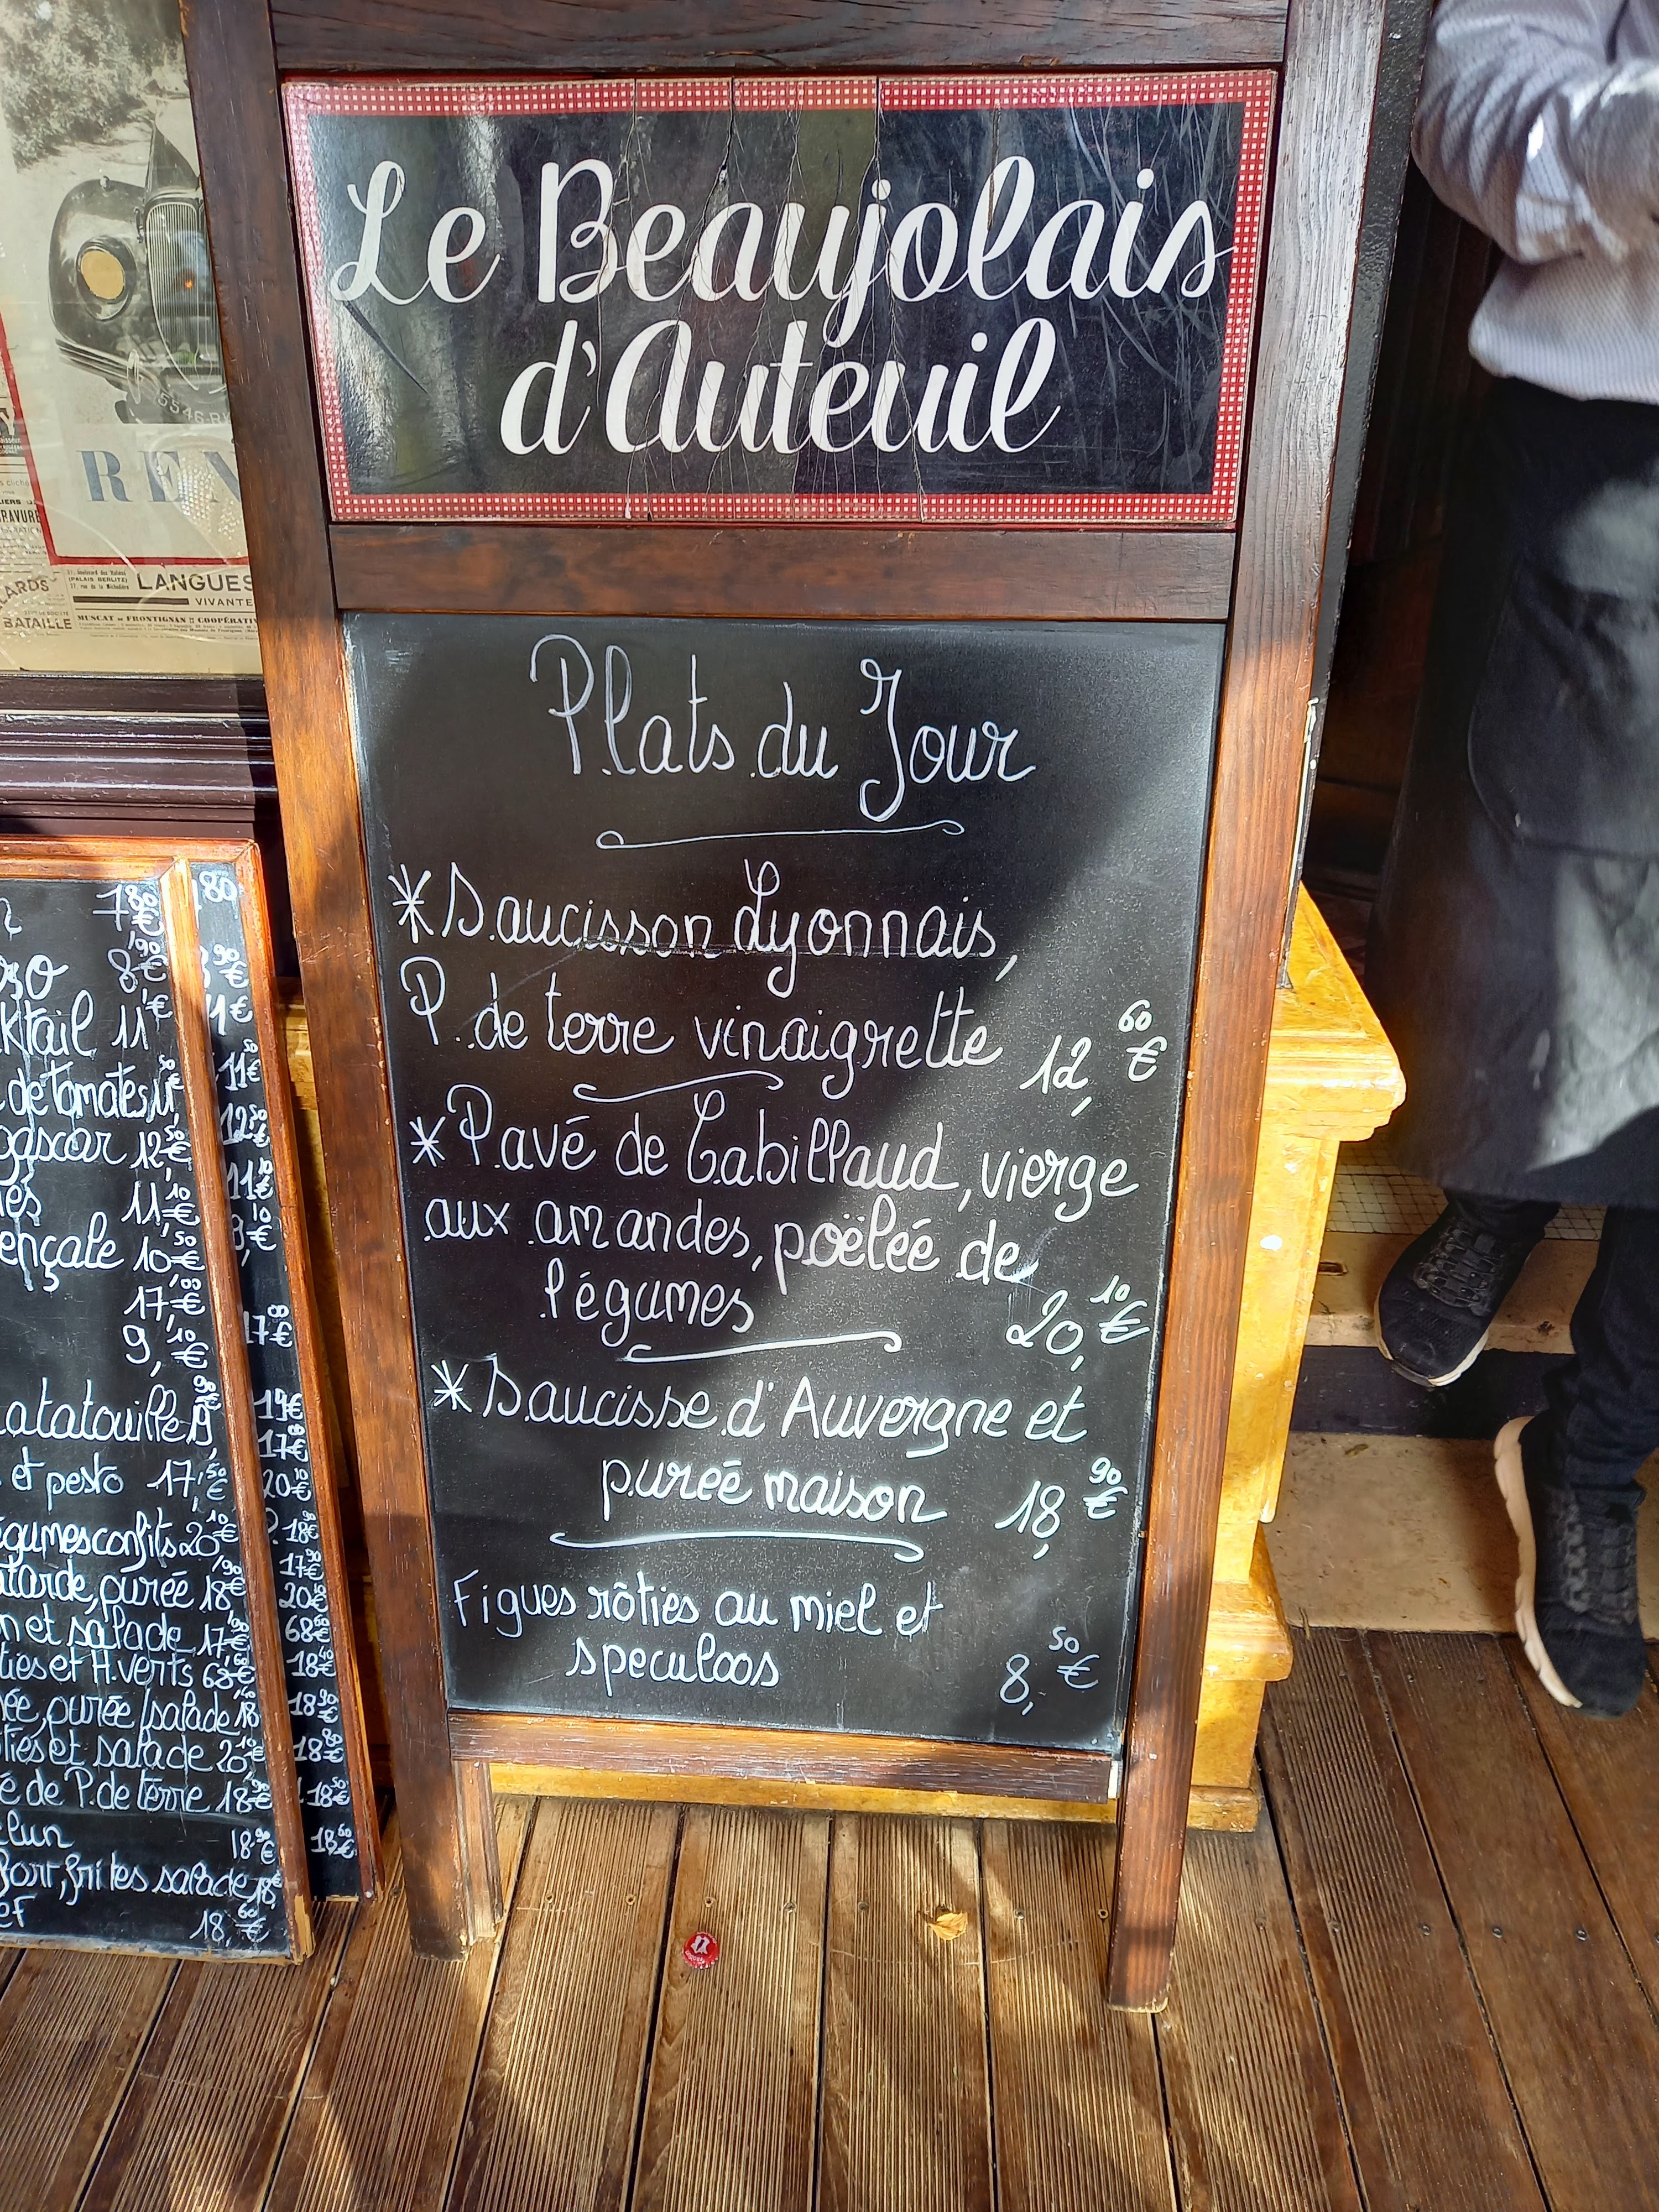 Le Beaujolais
d'Auteuil
Plats du Jour
*Saucisson Lyonnais,
P. de terre vinaigrette 12,60 €
*Pavé de Cabillaud, vierge
aux amandes, poëlée de
légumes 20,10 €
*Saucisse d'Auvergne et
purée maison 18,90 €
Figues rôties au miel et
speculoos 8,50 €
REN
LANGUES
VIVANTE
BATAILLE
MUSCAT de FRONTIGNAN
7,80 €
8,90 €
ktail 11 €
de tomates 11,50 €
gascar 12,50 €
11,10 €
ençale 10,50 €
17,00 €
9,10 €
atatouille 19,90
et pesto 17,50 €
égumes confits 20,10 €
tarde, purée 18,90 €
n et salade 17,90 €
ties et H. verts 68,60 €
ée, purée/salade 18,40
ties et salade 20,10
e de P. de terre 18,90 €
lun 18,90 €
fort, frites salade 18 €
ef 18,60 €
80
,90 €
1 €
11,50 €
12,50 €
11,10 €
9,10 €
17,00 €
19 €
17 €
20,10 €
18 €
17,90 €
20 €
68,60 €
18,40 €
18,90 €
18,80 €
18,50 €
18,60 €